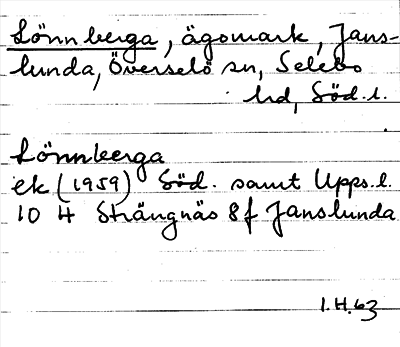 Lönnberga, ägomark, Jans-
lunda, Överselö sn, Selebo
hd, Söd. l.
Lönnberga
ek (1959) Söd. samt Upps. l.
10 H Strängnäs 8f Janslunda
I.H.63